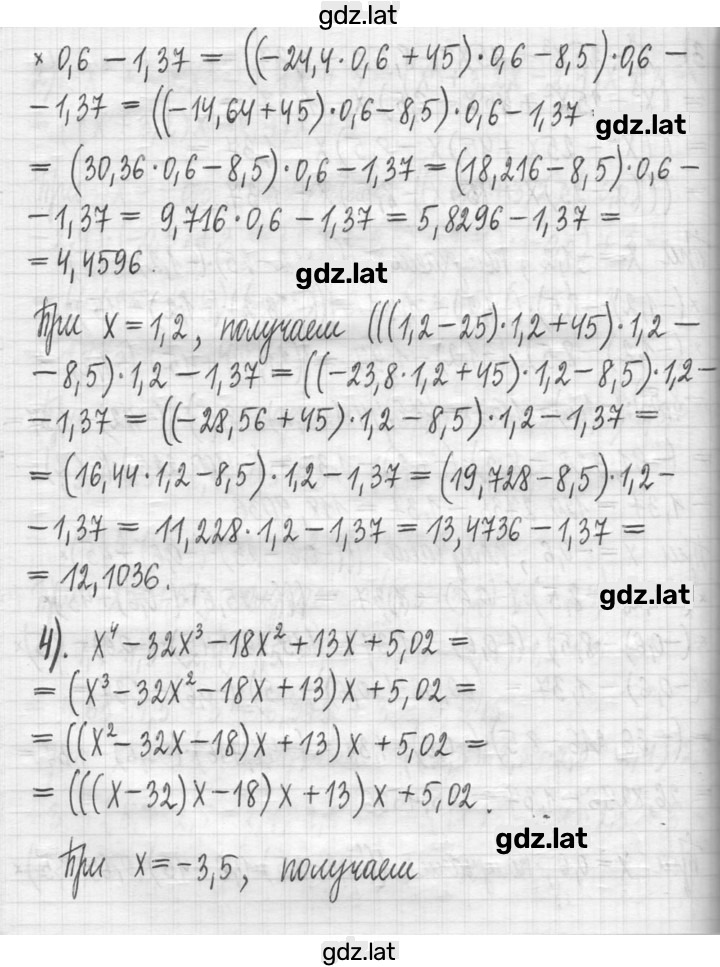 gdz.lat
× 0,6 − 1,37 = ((−24,4·0,6 + 45)·0,6 − 8,5)·0,6 −
− 1,37 = ((−14,64+45)·0,6 − 8,5)·0,6 − 1,37
gdz.lat
= (30,36·0,6 − 8,5)·0,6 − 1,37 = (18,216 − 8,5)·0,6 −
− 1,37 = 9,716·0,6 − 1,37 = 5,8296 − 1,37 =
= 4,4596.
gdz.lat
При x = 1,2, получаем (((1,2 − 25)·1,2 + 45)·1,2 −
− 8,5)·1,2 − 1,37 = ((−23,8·1,2 + 45)·1,2 − 8,5)·1,2 −
− 1,37 = ((−28,56 + 45)·1,2 − 8,5)·1,2 − 1,37 =
= (16,44·1,2 − 8,5)·1,2 − 1,37 = (19,728 − 8,5)·1,2 −
− 1,37 = 11,228·1,2 − 1,37 = 13,4736 − 1,37 =
= 12,1036.
gdz.lat
4). x⁴ − 32x³ − 18x² + 13x + 5,02 =
= (x³ − 32x² − 18x + 13)x + 5,02 =
= ((x² − 32x − 18)x + 13)x + 5,02 =
= (((x − 32)x − 18)x + 13)x + 5,02.
gdz.lat
При x = −3,5, получаем
gdz.lat